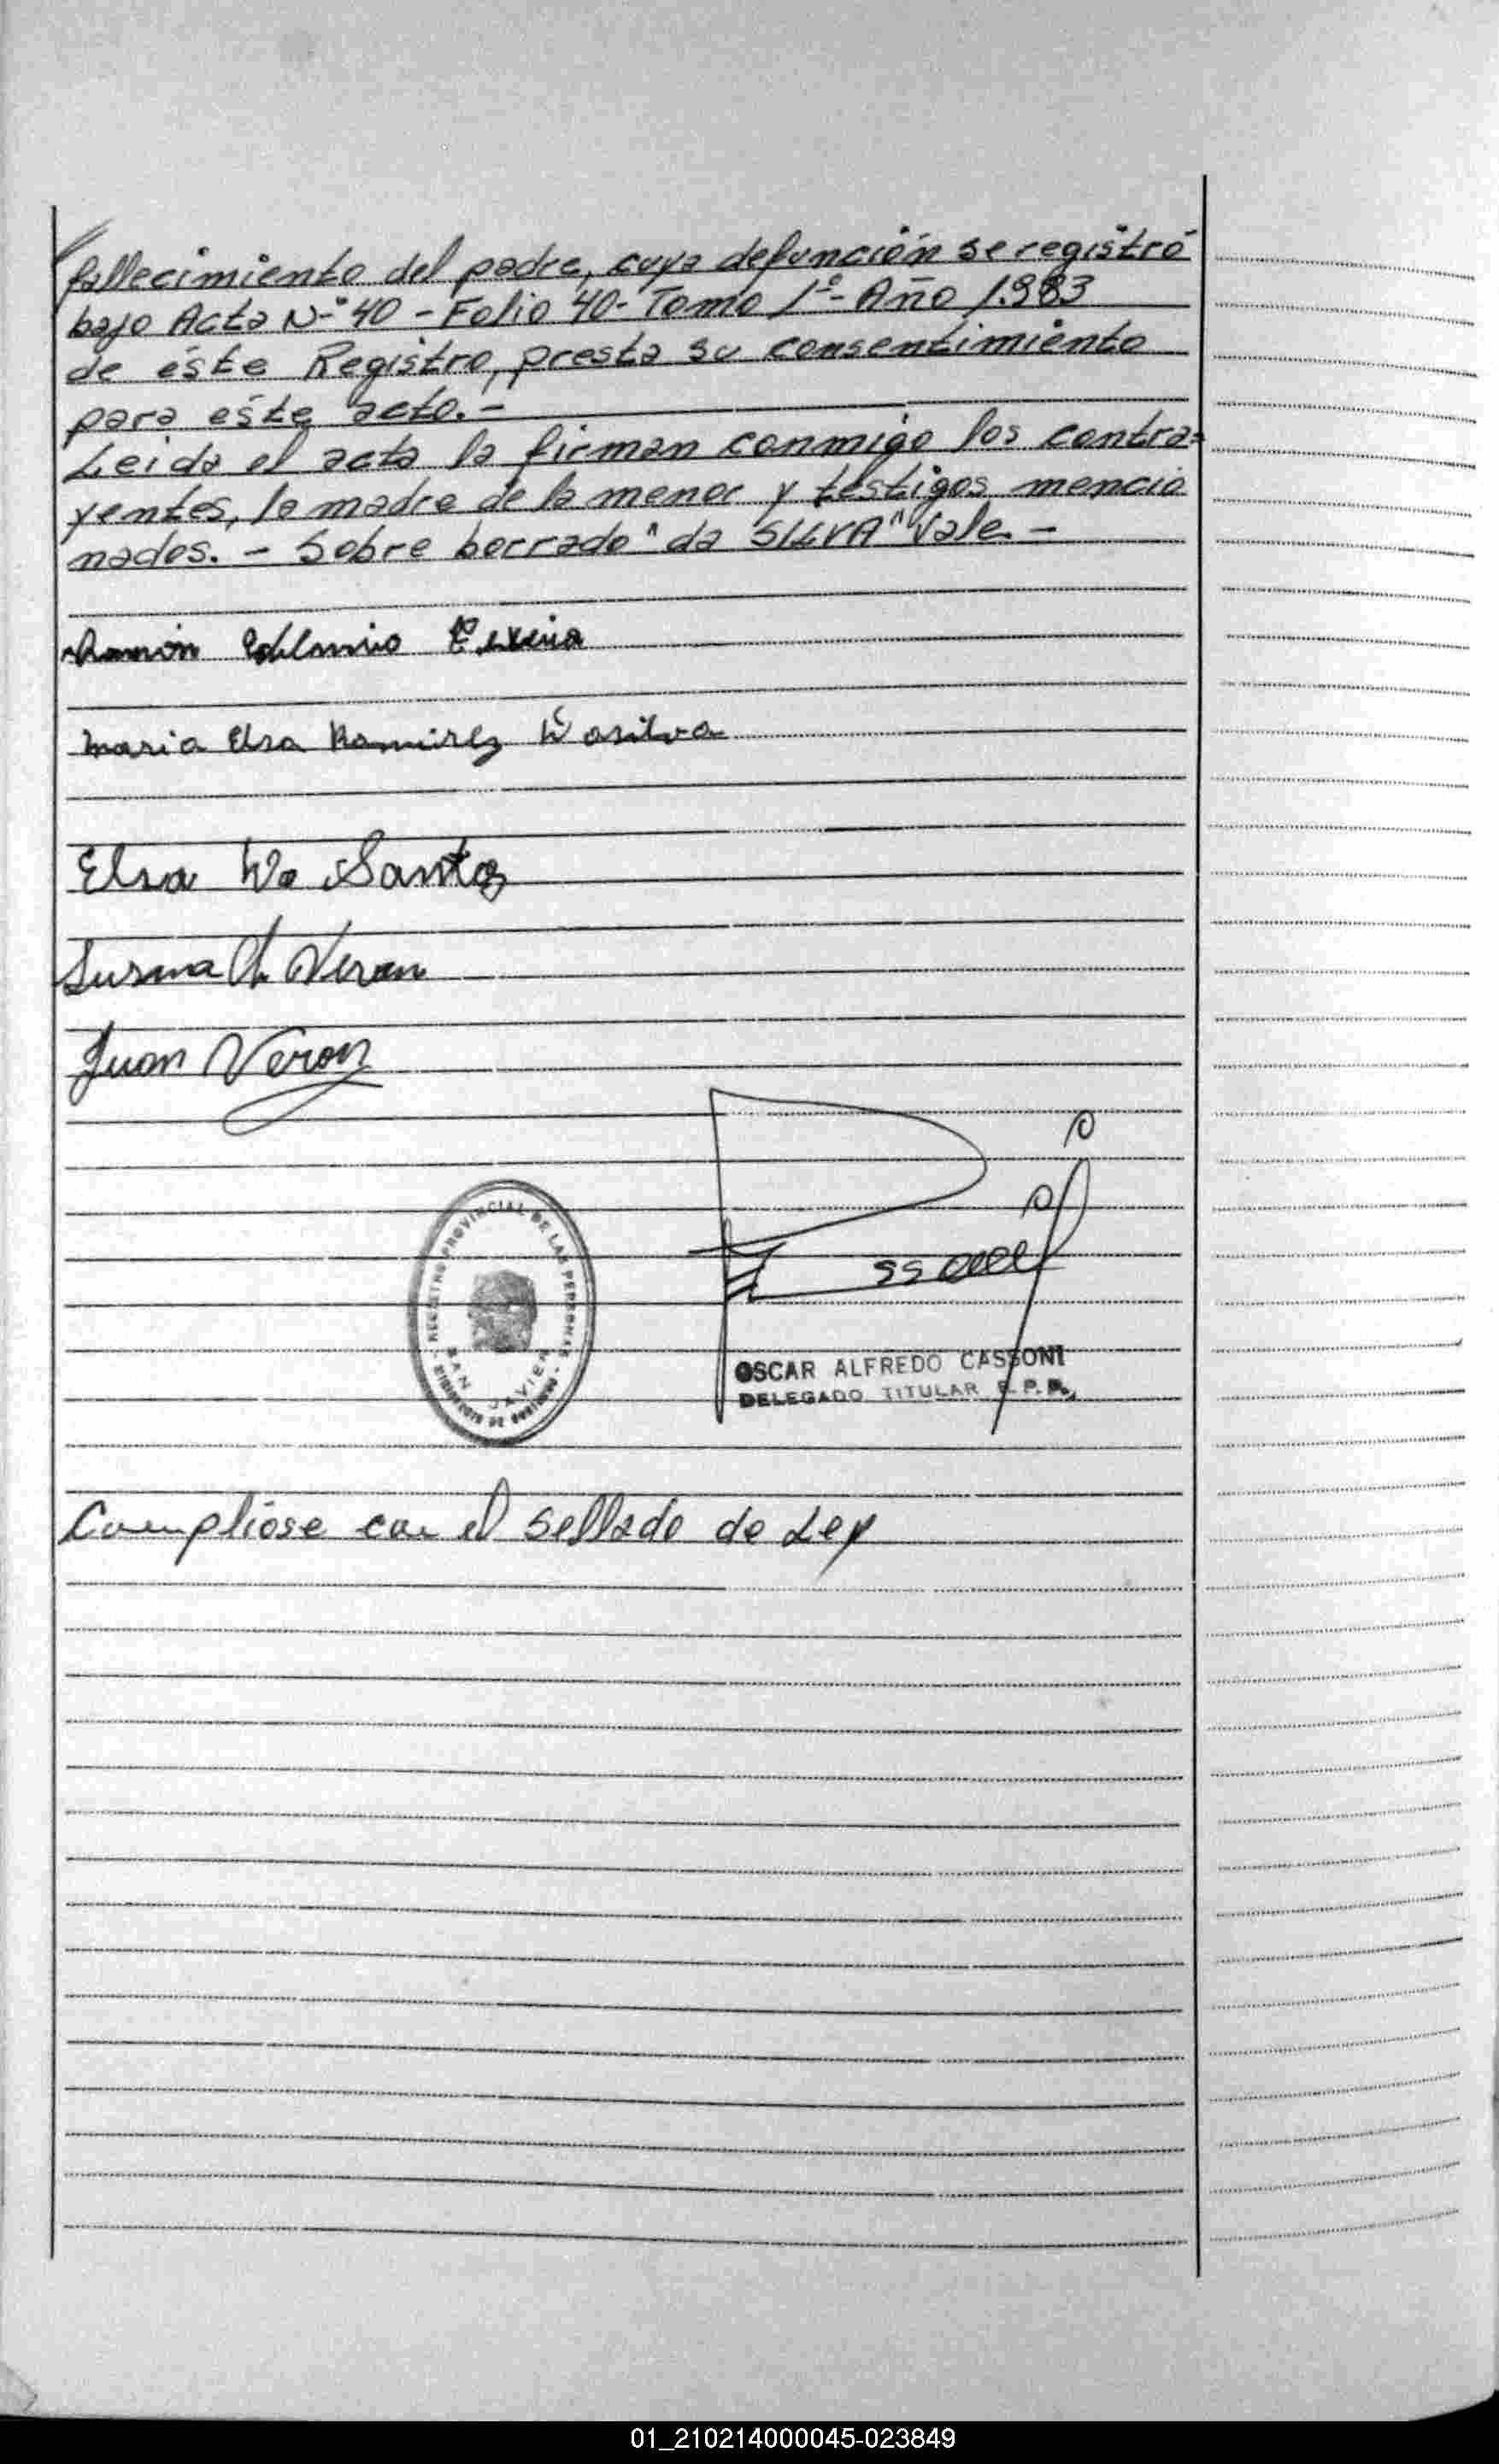 fallecimiento del padre, cuya defunción se registró
bajo Acta Nº 40 - Folio 40 - Tomo 1º - Año 1.983
de éste Registro, presta su consentimiento
para este acto.-
Leida el acta la firman conmigo los contra=
yentes, la madre de la menor y testigos mencio
nados. - Sobre borrado "da SILVA" Vale. -
Ramón
Maria Elsa Ramirez Dasilva
Elsa Da Santos
Susana Veron
Juan Veron
REGISTRO PROVINCIAL DE LAS PERSONAS
SAN JAVIER
OSCAR ALFREDO CASSONI
DELEGADO TITULAR R. P. P.
Complióse con el sellado de Ley
01_210214000045-023849